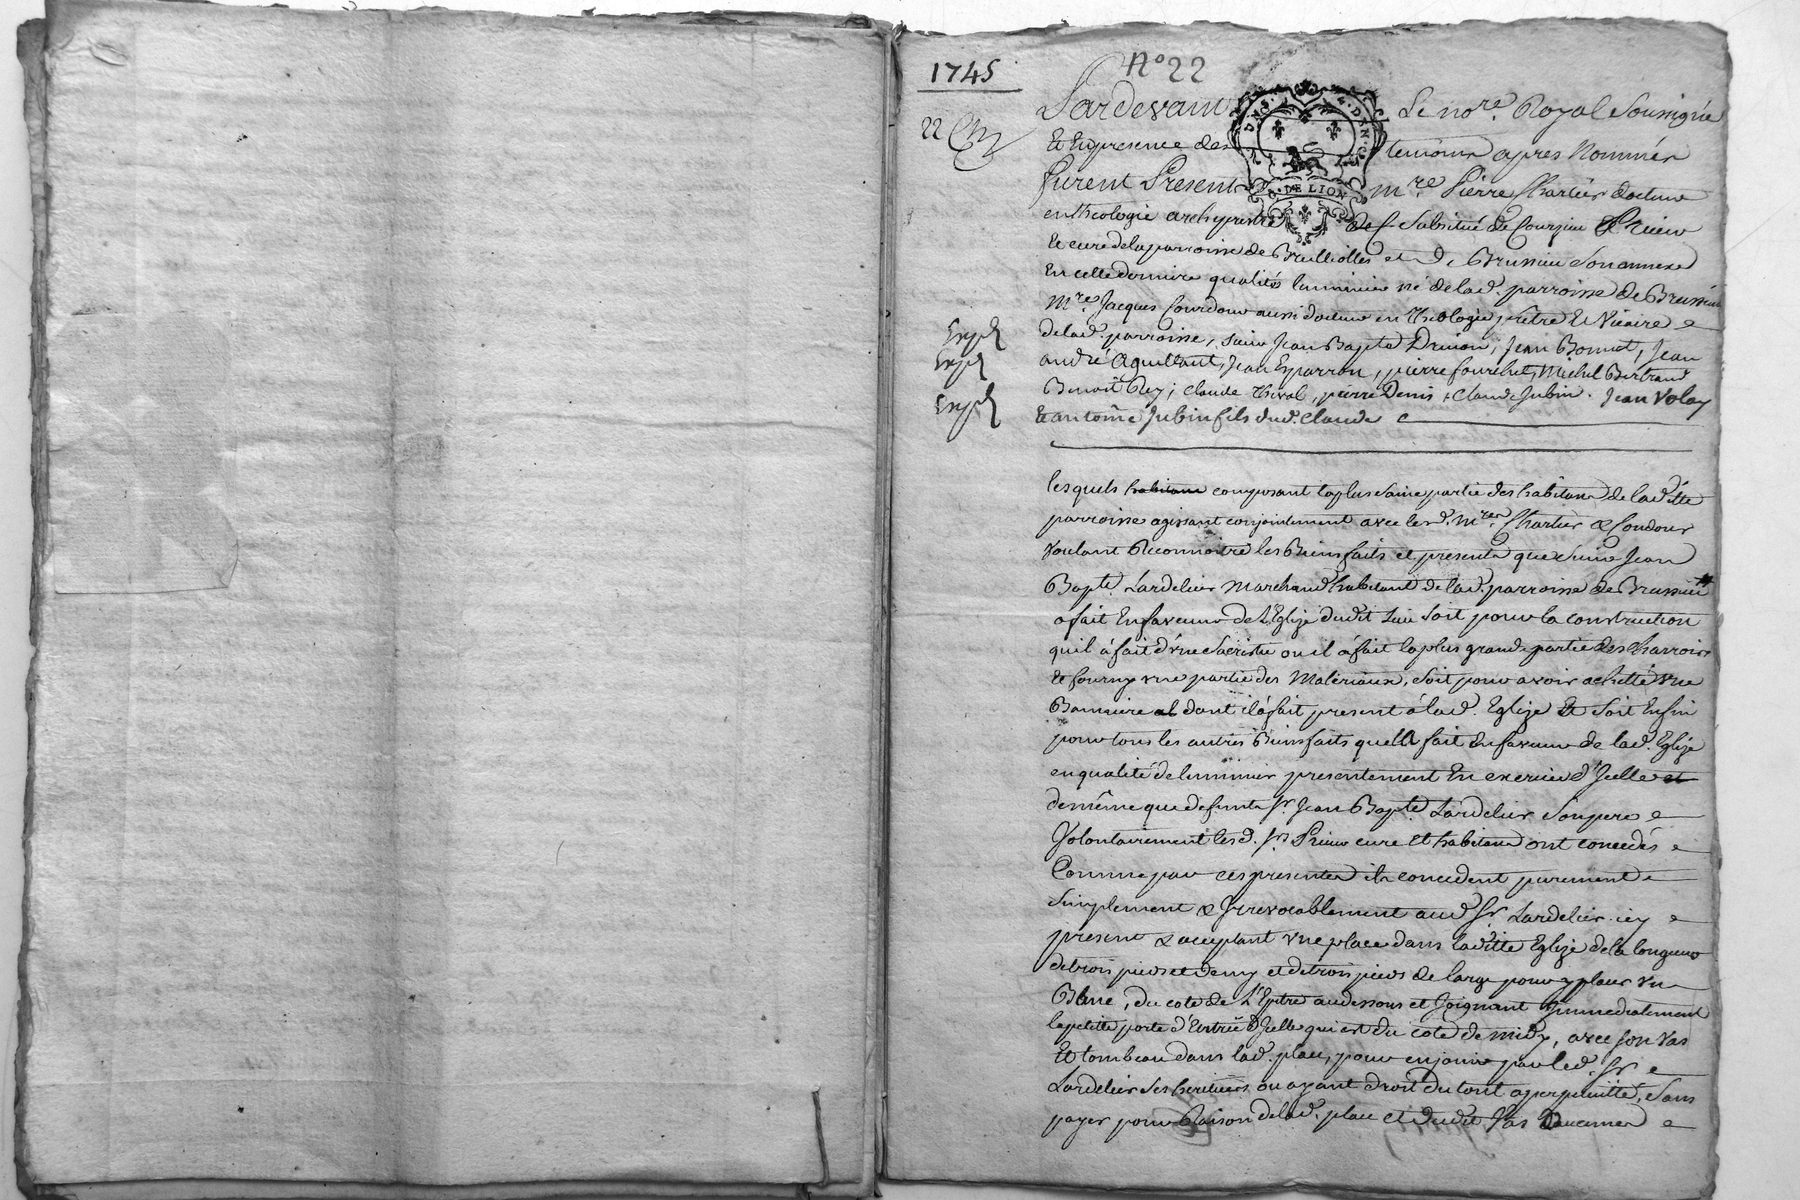 1745
N° 22
22
Pardevant Le no.re Royal Soussigné
Et En presence des temoins apres Nommés
DEUX S. 4. DEN.
G. DE LION
furent Presents M.re Pierre Chartier docteur
en theologie archyprestre Substitué de Courzieu & Prieur
Et curé de la parroisse de Brulliolles et de Brussieu Son annexe
En cette derniere qualité luminier né de lad. parroisse de Brussieu
M.re Jacques Coudour aussi docteur en Theologie prêtre Et Vicaire
de lad. parroisse, sieur Jean Bapte Drivon, Jean Bonnet, Jean
Exp.d
andré Aguillant, Jean Esparron, pierre fourchet, Michel Bertrand
Exp.d
Benoît Rey, Claude Theval, pierre Denis, Claude Jubin, Jean Volay
Exp.d
Et antoine Jubin fils dud. Claude
lesquels habitans composant la plus Saine partie des habitans de laditte
parroisse agissant conjointement avec lesd. M.res Chartier & Coudour
voulant Reconnoitre les Bienfaits et presents que Sieur Jean
Bapte. Lardelier Marchand habitant de lad. parroisse de Brussieu
a fait En faveur de L'Eglize dudit Lieu Soit pour la construction
quil à fait d'une Sacristie ou il à fait la plus grande partie des charrois
Et fourny une partie des Materiaux, Soit pour avoir achetté une
Banniere dont il à fait present à lad. Eglize Et Soit Enfin
pour tous les autres Bienfaits quil a fait En faveur de lad. Eglize
en qualité de luminier presentement En exercice d'Jcelle et
de même que defunt Sr. Jean Bapte. Lardelier Son pere
Volontairement lesd. Srs. Prieur curé Et habitans ont concedés
Comme par ces presentes ils concedent purement
Simplement & Jrrevocablement aud. Sr Lardelier icy
present & acceptant une place dans laditte Eglize de la longueur
de trois pieds et demy et de trois pieds de large pour y placer un
Banc, du coté de L'Epitre au dessous et Joignant Immediatement
la petite porte d'Entrée d'Jcelle qui est du coté de midy, avec son Vas
Et tombeau dans lad. place, pour en jouir par led. Sr
Lardelier Ses heritiers ou ayant droit du tout a perpetuitté, Sans
payer pour Raison de lad. place et dudit Vas Aucunes